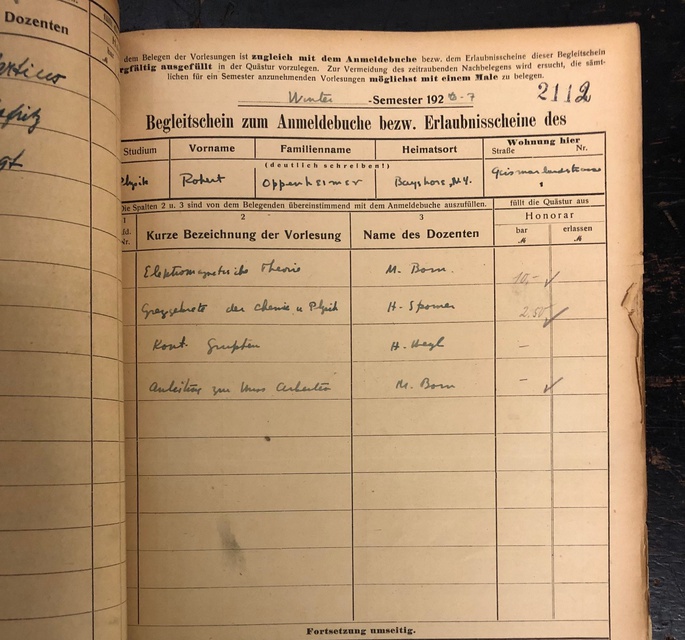 Dozenten
dem Belegen der Vorlesungen ist zugleich mit dem Anmeldebuche bezw. dem Erlaubnisscheine dieser Begleitschein
rgfältig ausgefüllt in der Quästur vorzulegen. Zur Vermeidung des zeitraubenden Nachbelegens wird ersucht, die sämt-
lichen für ein Semester anzunehmenden Vorlesungen möglichst mit einem Male zu belegen.
Winter -Semester 1926-7 2112
Begleitschein zum Anmeldebuche bezw. Erlaubnisscheine des
Studium Vorname Familienname Heimatsort Wohnung hier
Straße Nr.
(deutlich schreiben!)
Physik Robert Oppenheimer Bayshore, N.Y. Geismarlandstrasse 1
Die Spalten 2 u. 3 sind von dem Belegenden übereinstimmend mit dem Anmeldebuche auszufüllen. füllt die Quästur aus
1 2 3 Honorar
fd. Nr. Kurze Bezeichnung der Vorlesung Name des Dozenten bar erlassen
Elektromagnetische Theorie M. Born. 10,-
Grenzgebiete der Chemie u Physik H. Sponer 2.50
Kont. Gruppen H. Weyl -
Anleitung zu Wiss Arbeiten M. Born -
Fortsetzung umseitig.